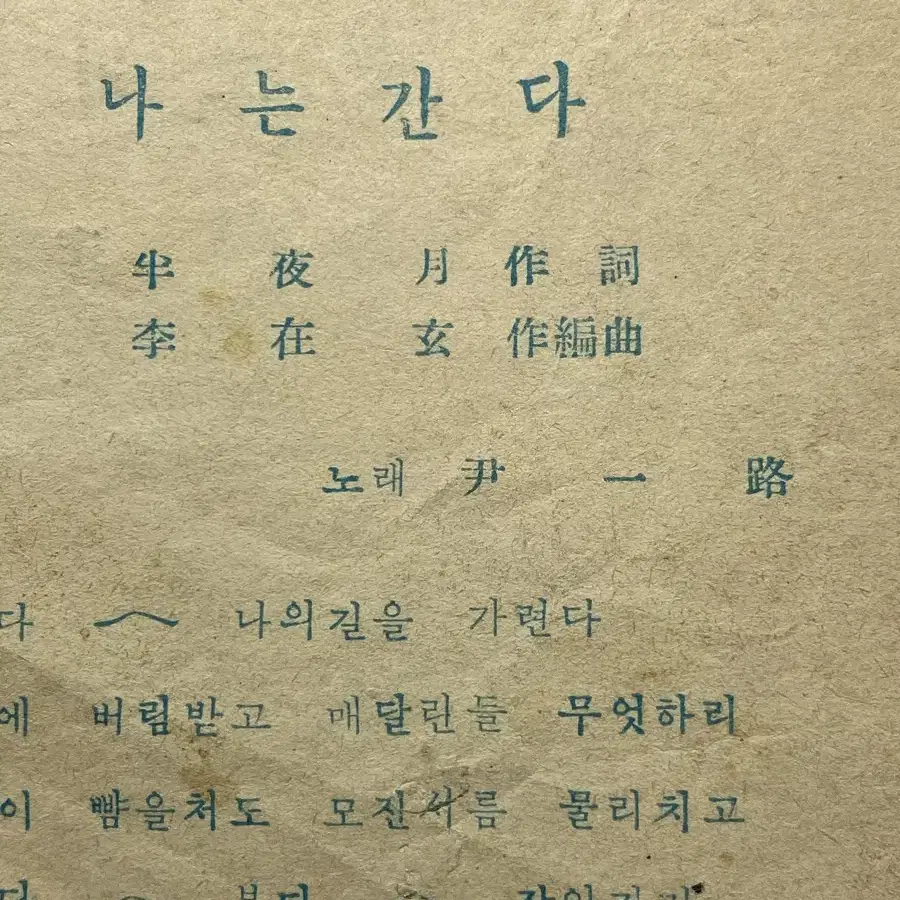 나는간다
半夜月 作詞
李在玄 作編曲
노래 尹一路
다 ︵ 나의길을 가련다
에 버림받고 매달린들 무엇하리
이 뺨을처도 모진서름 물리치고